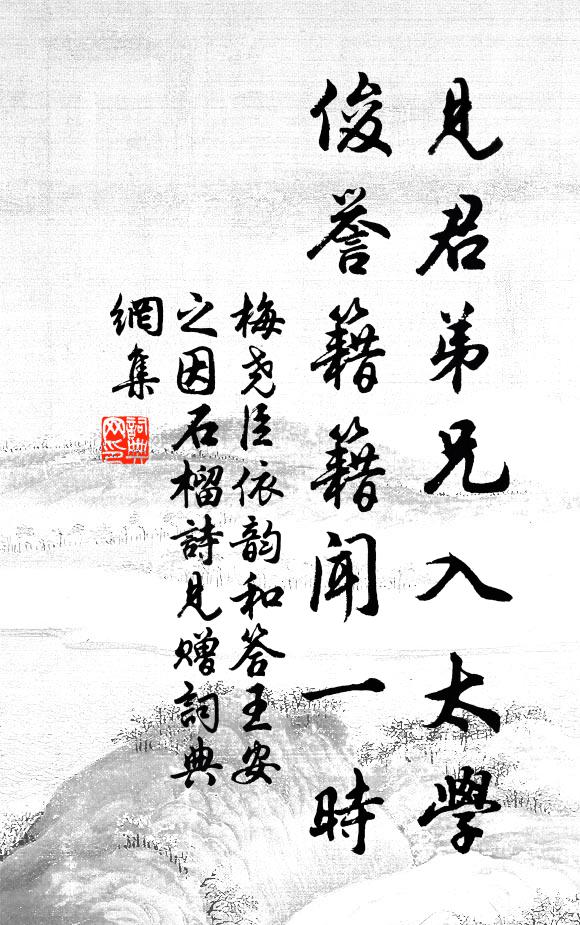 見君弟兄入太學
俊誉籍籍聞一時
梅堯臣依韵和答王安
之因石榴詩見贈詞典
網集
詞典
网